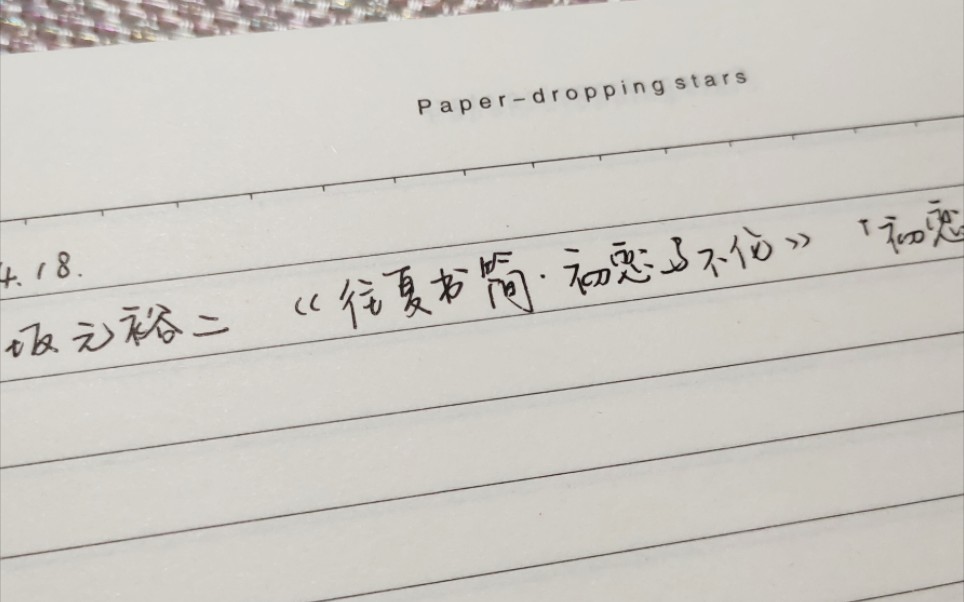 Paper-dropping stars
4.18.
坂元裕二 《往复书简·初恋与不伦》 「初恋